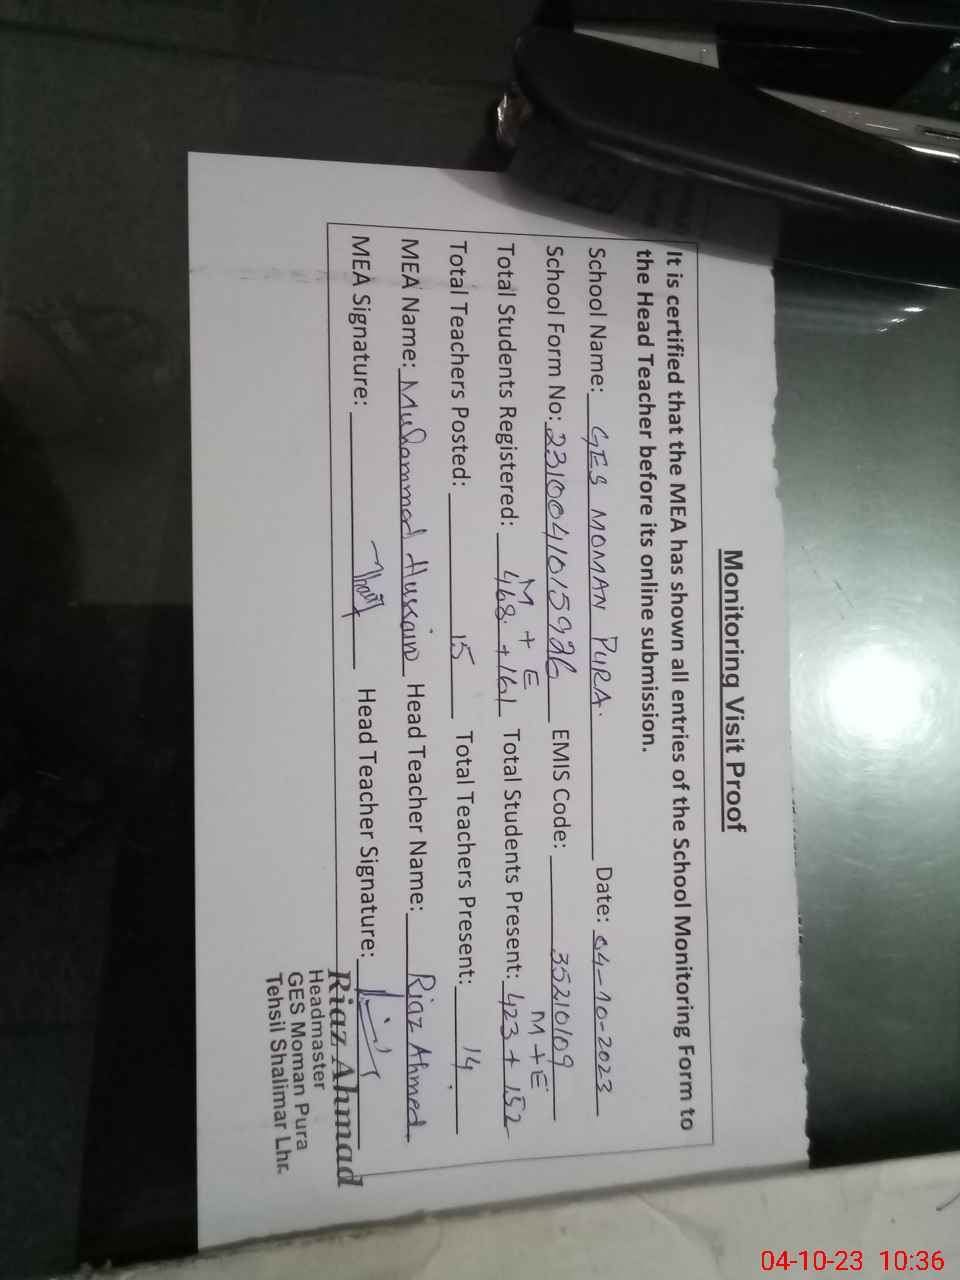 Monitoring Visit Proof
It is certified that the MEA has shown all entries of the School Monitoring Form to
the Head Teacher before its online submission.
School Name: GES MOMAN PURA. Date: 04-10-2023
School Form No: 2310041015926 EMIS Code: 35210109
M + E M + E
Total Students Registered: 468 + 161 Total Students Present: 423 + 152
Total Teachers Posted: 15 Total Teachers Present: 14
MEA Name: Muhammad Hussain Head Teacher Name: Riaz Ahmed
MEA Signature: Head Teacher Signature:
Riaz Ahmad
Headmaster
GES Moman Pura
Tehsil Shalimar Lhr.
04-10-23 10:36